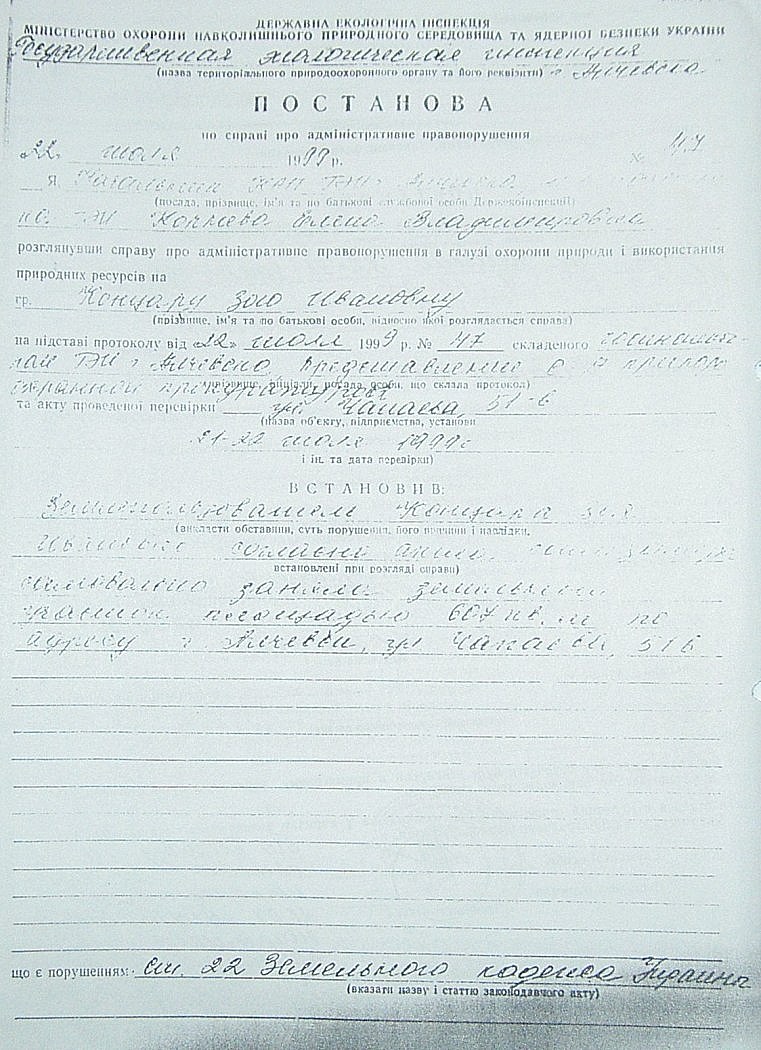 ДЕРЖАВНА ЕКОЛОГІЧНА ІНСПЕКЦІЯ
МІНІСТЕРСТВО ОХОРОНИ НАВКОЛИШНЬОГО ПРИРОДНОГО СЕРЕДОВИЩА ТА ЯДЕРНОЇ БЕЗПЕКИ УКРАЇНИ
Государственная экологическая инспекция
(назва територіального природоохоронного органу та його реквізити) г Алчевска
ПОСТАНОВА
по справі про адміністративне правопорушення
22 июля 1999 р. № 47
Я, Начальник ТЭИ г Алчевска,
(посада, прізвище, ім'я та по батькові службової особи Держекоінспекції)
ТЭИ Елена Владимировна
розглянувши справу про адміністративне правопорушення в галузі охорони природи і використання
природних ресурсів на
гр. Концару Зою Ивановну
(прізвище, ім'я та по батькові особи, відносно якої розглядається справа)
на підставі протоколу від «22» июля 1999 р. № 47 складеного
ТЭИ г Алчевска,
(прізвище, ініціали, посада особи, що склала протокол)
та акту проведеної перевірки ул Чапаева, 51-б
(назва об'єкту, підприємства, установи
21-22 июля 1999г
і ін. та дата перевірки)
ВСТАНОВИВ:
Землепользователем Концара Зоя
(викласти обставини, суть порушення, його причини і наслідки,
согласно акта
встановлені при розгляді справи)
заняла земельный
участок площадью 607 кв. м по
адресу г Алчевск, ул Чапаева, 51б
що є порушенням: Ст. 22 Земельного кодекса Украины
(вказати назву і статтю законодавчого акту)